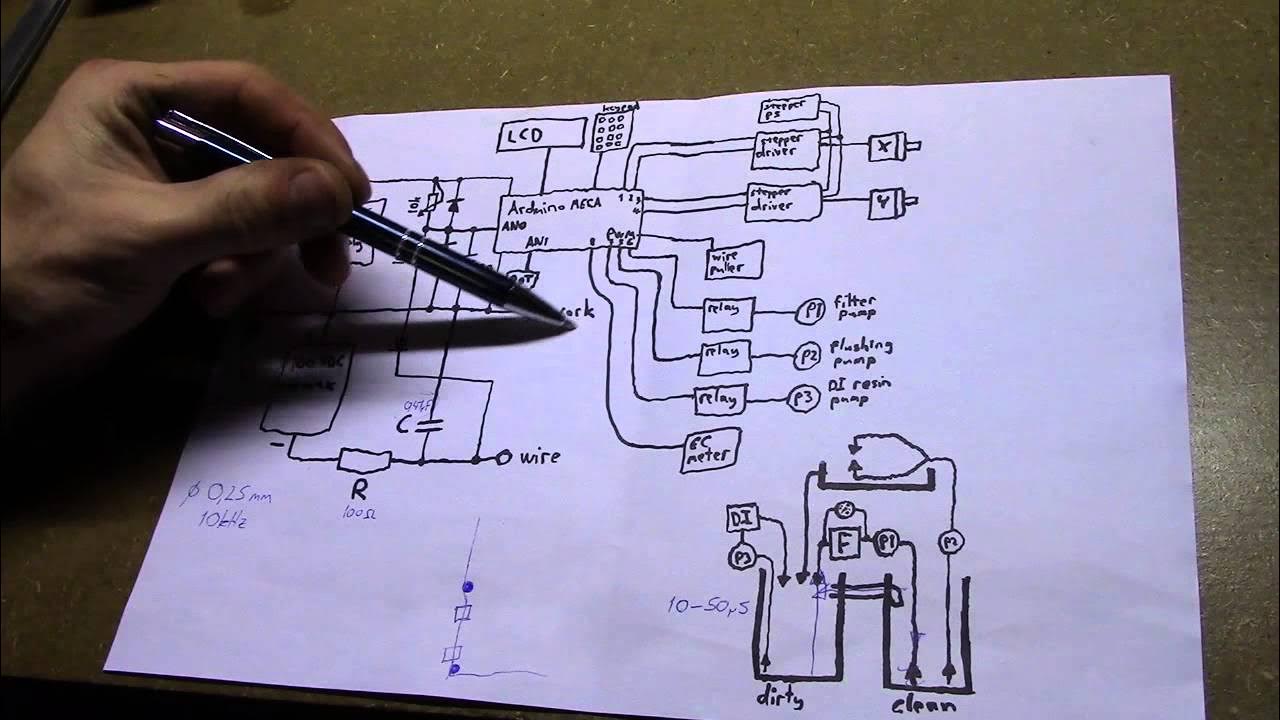 LCD
keypad
stepper
PS
stepper
driver
X
Arduino MEGA
1 2 3
4
stepper
driver
Y
AN0
AN1
8
PWM
POT
wire
puller
relay
P1
filter
pump
relay
P2
flushing
pump
relay
P3
DI resin
pump
EC
meter
C
wire
R
100Ω
Ø 0,25mm
10kHz
DI
P3
F
P1
P2
10-50µS
dirty
clean